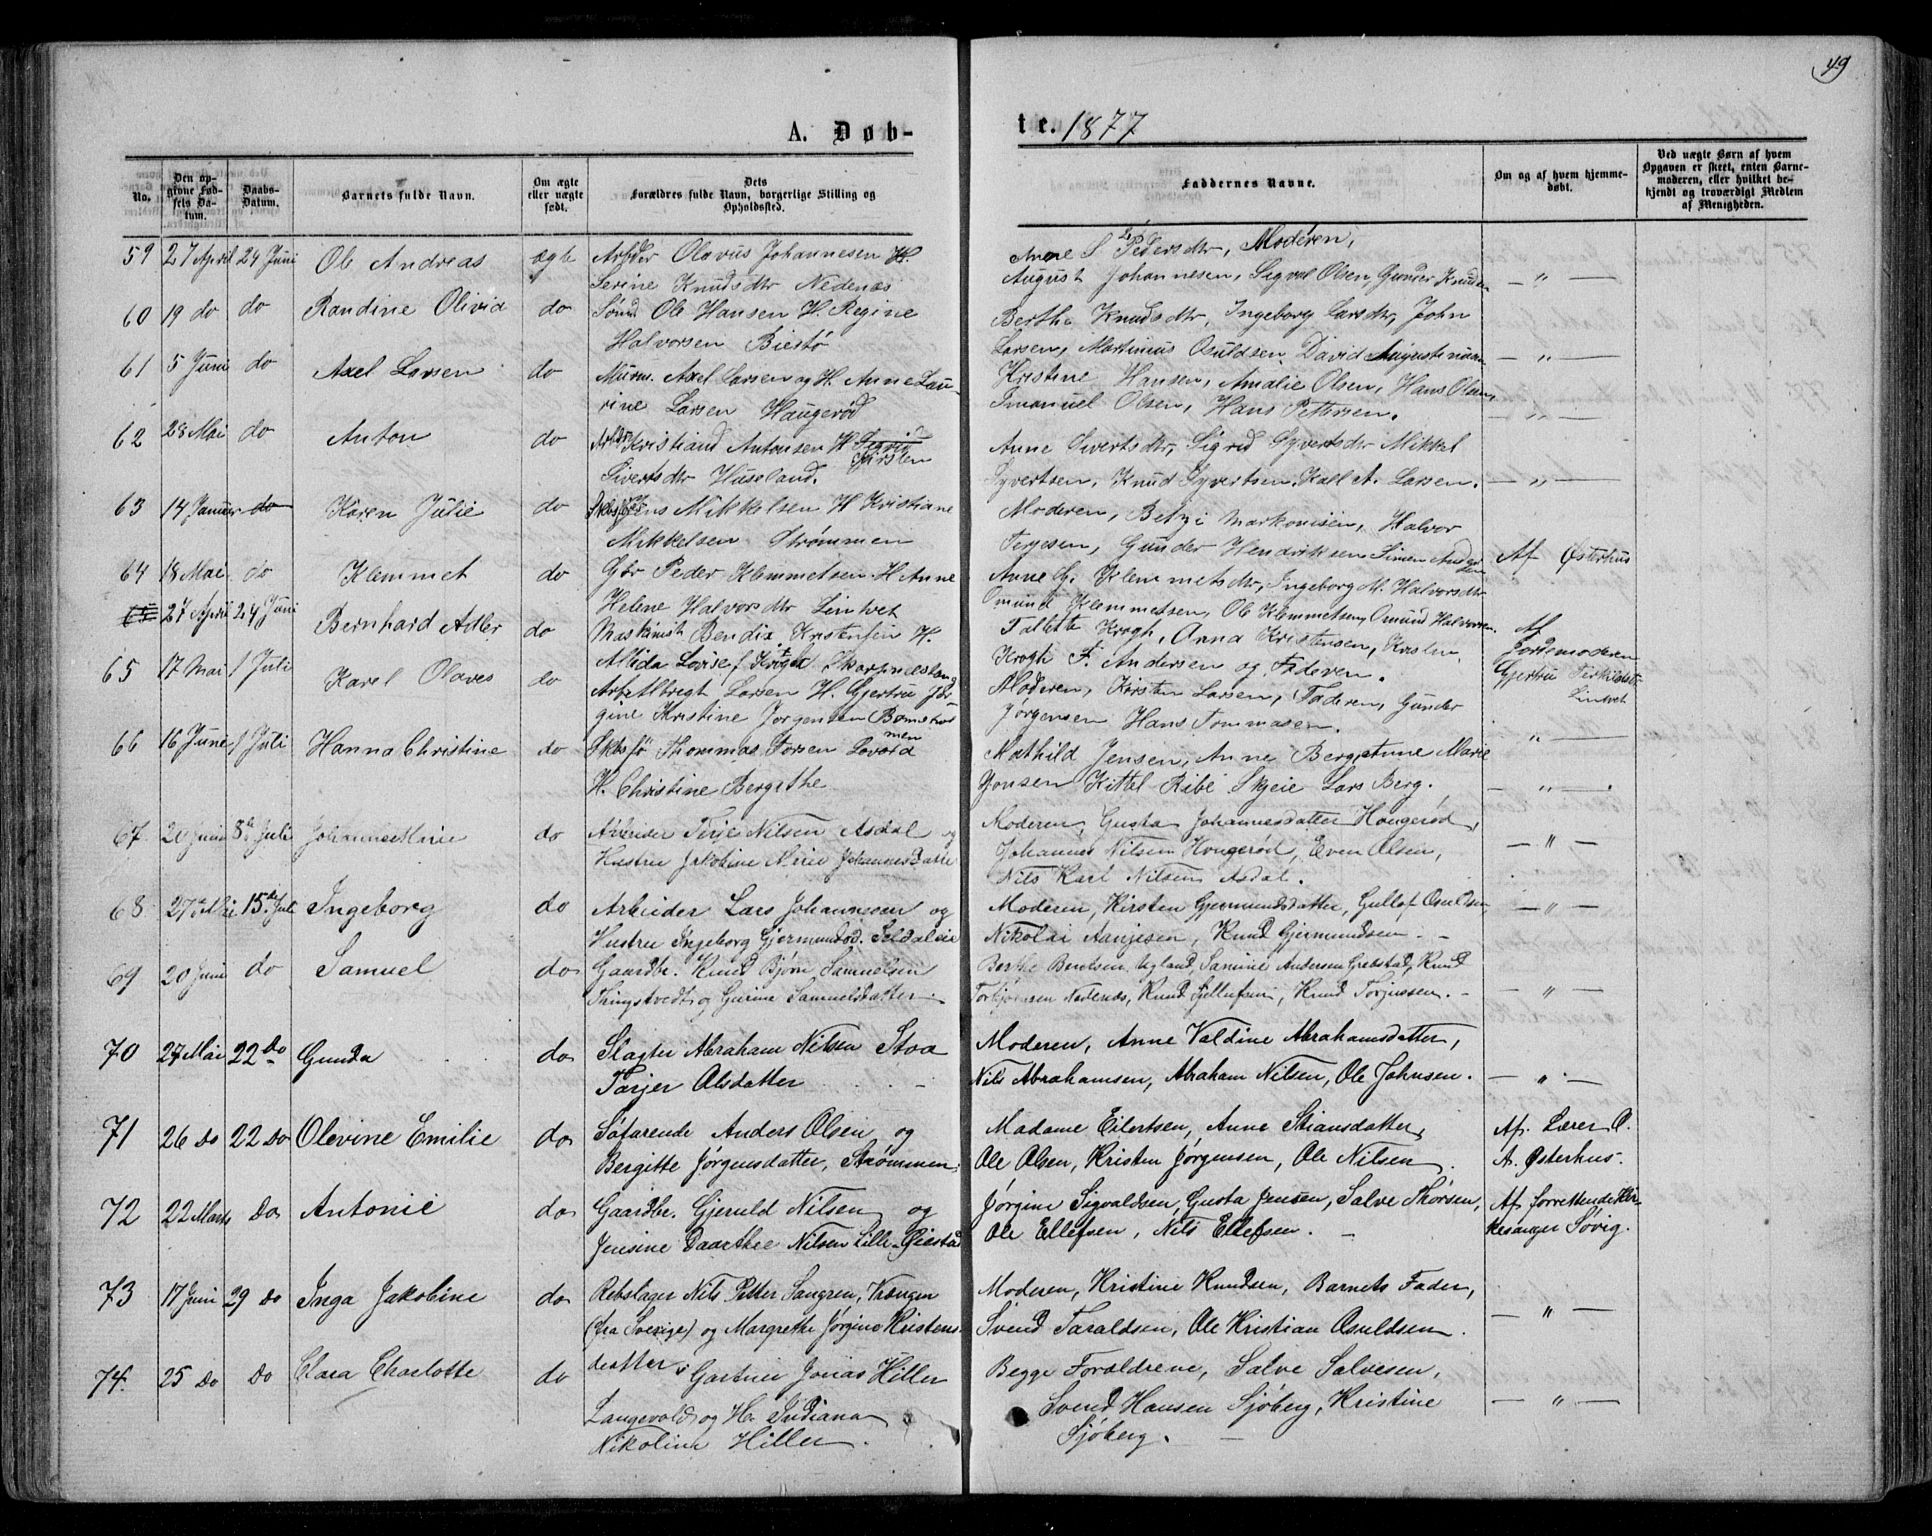 49
A. Døb-
te. 1877
No.
Den opgivne Fødsels Datum.
Daabs-Datum.
Barnets fulde Navn.
Om ægte eller uægte født.
Dets Forældres fulde Navn, borgerlige Stilling og Opholdssted.
Faddernes Navne.
Om og af hvem hjemmedøbt.
Ved uægte Børn af hvem Opgaven er skeet, enten Barnemoderen, eller hvilket bekjendt og troværdigt Medlem af Menigheden.
59 27 April 24 Juni Ole Andreas ægte Arbder Olavus Johannesen H.
Serine Knudsdtr Nedenæs
Anne S Pedersdtr, Moderen,
August Johannesen, Sigval Olsen, Gunder Knudsen — " —
60 19 do do Randine Olivia do Sømd Ole Hansen H. Regine
Halvorsen Biestø
Berthe Knudsdtr, Ingeborg Larsdtr, John
Larsen, Martinus Osuldsen, David Augustinusen — " —
61 5 Juni do Axel Larsen do Murm. Axel Larsen og H. Anne Lau-
rine Larsen Haugerød
Kristine Hansen, Amalie Olsen, Hans Olsen,
Emanuel Olsen, Hans Pettersen. — " —
62 28 Mai do Anton do Arbdr Kristian Antonsen H. Kirsten
Sivertsdtr Huseland.
Anne Sivertsdtr, Sigrid Syvertsdtr Mikkel
Syvertsen, Knud Syvertsen, Kall A. Larsen. — " —
63 14 Januar do Karen Julie do Skbsf Jens Mikkelsen H Kristiane
Mikkelsen Strømmen
Moderen, Betzi Markonisen, Halvor
Terjesen, Gunder Hendriksen Simen Andersen Af Østerhus
64 18 Mai do Klemmet do Gbr Peder Klemmetsen H Anne
Helene Halvorsdtr Lintvet
Anne G. Klemmetsdtr, Ingeborg M. Halvorsdtr
Omund Klemmetsen, Ole Klemmetsen, Omund Halvorsen.
65 27 April 24 Juni Bernhard Adler do Maskinist Bendix Kristensen H.
Alida Lovise f. Krogh Skarpnesland
Talette Krogh, Anna Kristensen, Kristen
Krogh F. Andersen og Faderen.
Af Jordemoderen
Gjertru Terkildsen
Lintvet
65 17 Mai 1 Juli Karel Olaves do Arb. Albregt Larsen H. Gjertru Jør-
gine Kristine Jorgensen Bomsholmen
Moderen, Kirsten Larsen, Faderen, Gunder
Jørgensen Hans Tommasen. — " —
66 16 June 1 Juli Hanna Christine do Skbsfø Thommas Torsen Lovold
H. Christine Bergithe
Mathild Jensen, Anne Berg, Anne Marie
Jonsen Kittel Ribe Skjeie Lars Berg. — " —
67 20 Juni 8de Juli Johanne Marie do Arbeider Terje Nilsen Asdal og
Hustru Jakobine Mirie Johannesdatter
Moderen, Gusta Johannesdatter Hougerød,
Johannes Nilsen Hougerød, Even Olsen,
Nils Karl Nilsen Asdal. — " —
68 27de Mai 15de Juli Ingeborg do Arbeider Lars Johannesen og
Hustru Ingeborg Gjermundsd. Seldaleie
Moderen, Kirsten Gjermundsdatter, Gullof Osuldsen,
Nikolai Aanjesen, Knud Gjermundsen. — " —
69 20 Juni do Samuel do Gaardbr. Knud Bjørn Samuelsen
Tringstvedt og Gurine Samuelsdatter.
Berthe Bentsen Ugland, Samine Andersen Grebstad, Knud
Torbjørnsen Nedenæs, Knud Gullufsen, Knud Torjussen. — " —
70 27 Mai 22 do Gunda do Slagter Abraham Nilsen Stoa
Tarjer Olsdatter
Moderen, Anne Valdine Abrahamsdatter,
Nils Abrahamsen, Abraham Nilsen, Ole Johnsen. — " —
71 26 do 22 do Olevine Emilie do Søfarende Anders Olsen og
Bergitte Jørgensdatter, Strømmen.
Madame Eilertsen, Anne Stiansdatter,
Ole Olsen, Kristen Jørgensen, Ole Nilsen.
Af. Lærer O.
A. Østerhus.
72 22 Marts do Antonie do Gaardbr. Gjeruld Nilsen og
Jensine Daarthee Nilsen Lille-Øiestad
Jørgine Sigvaldsen, Gusta Jensen, Salve Thorsen,
Ole Ellefsen, Nils Ellefsen.
Af forrettende Kir-
kesanger Søvig.
73 17 Juni 29 do Inga Jakobine do Rebslager Nils Petter Sangren, Vrængen
(fra Sverige) og Margrethe Jørgine Kristens-
datter.
Moderen, Kristine Knudsen, Barnets Fader,
Svend Taraldsen, Ole Kristian Osuldsen. — " —
74. 25 do do Clara Charlotte do Gartner Jonas Hiller
Langevold og H. Indiana
Nikoline Hiller.
Begge Forældrene, Salve Salvesen,
Svend Hansen Sjøberg, Kristine
Sjøberg. — " —